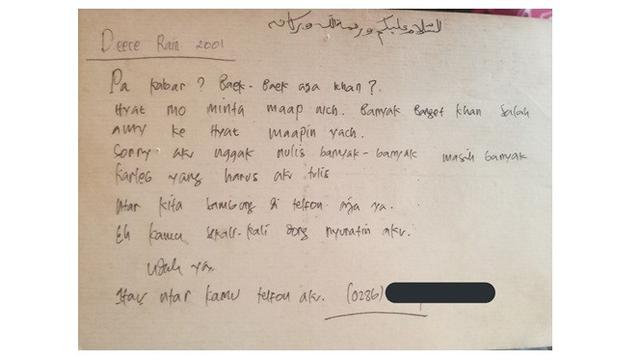 السلام عليكم ورحمة الله وبركاته
Deece Rain 2001
Pa kabar? Baek-Baek aja khan?.
Hyat mo minta maap nich. Banyak Banget khan salah
ke Hyat maapin yach.
Sorry aku nggak nulis banyak-banyak masih banyak
yang harus aku tulis
Ntar kita sambung di telfon aja ya.
Eh kamu sekali-kali dong nyuratin aku.
Udah ya.
ntar kamu telfon aku. (0286)